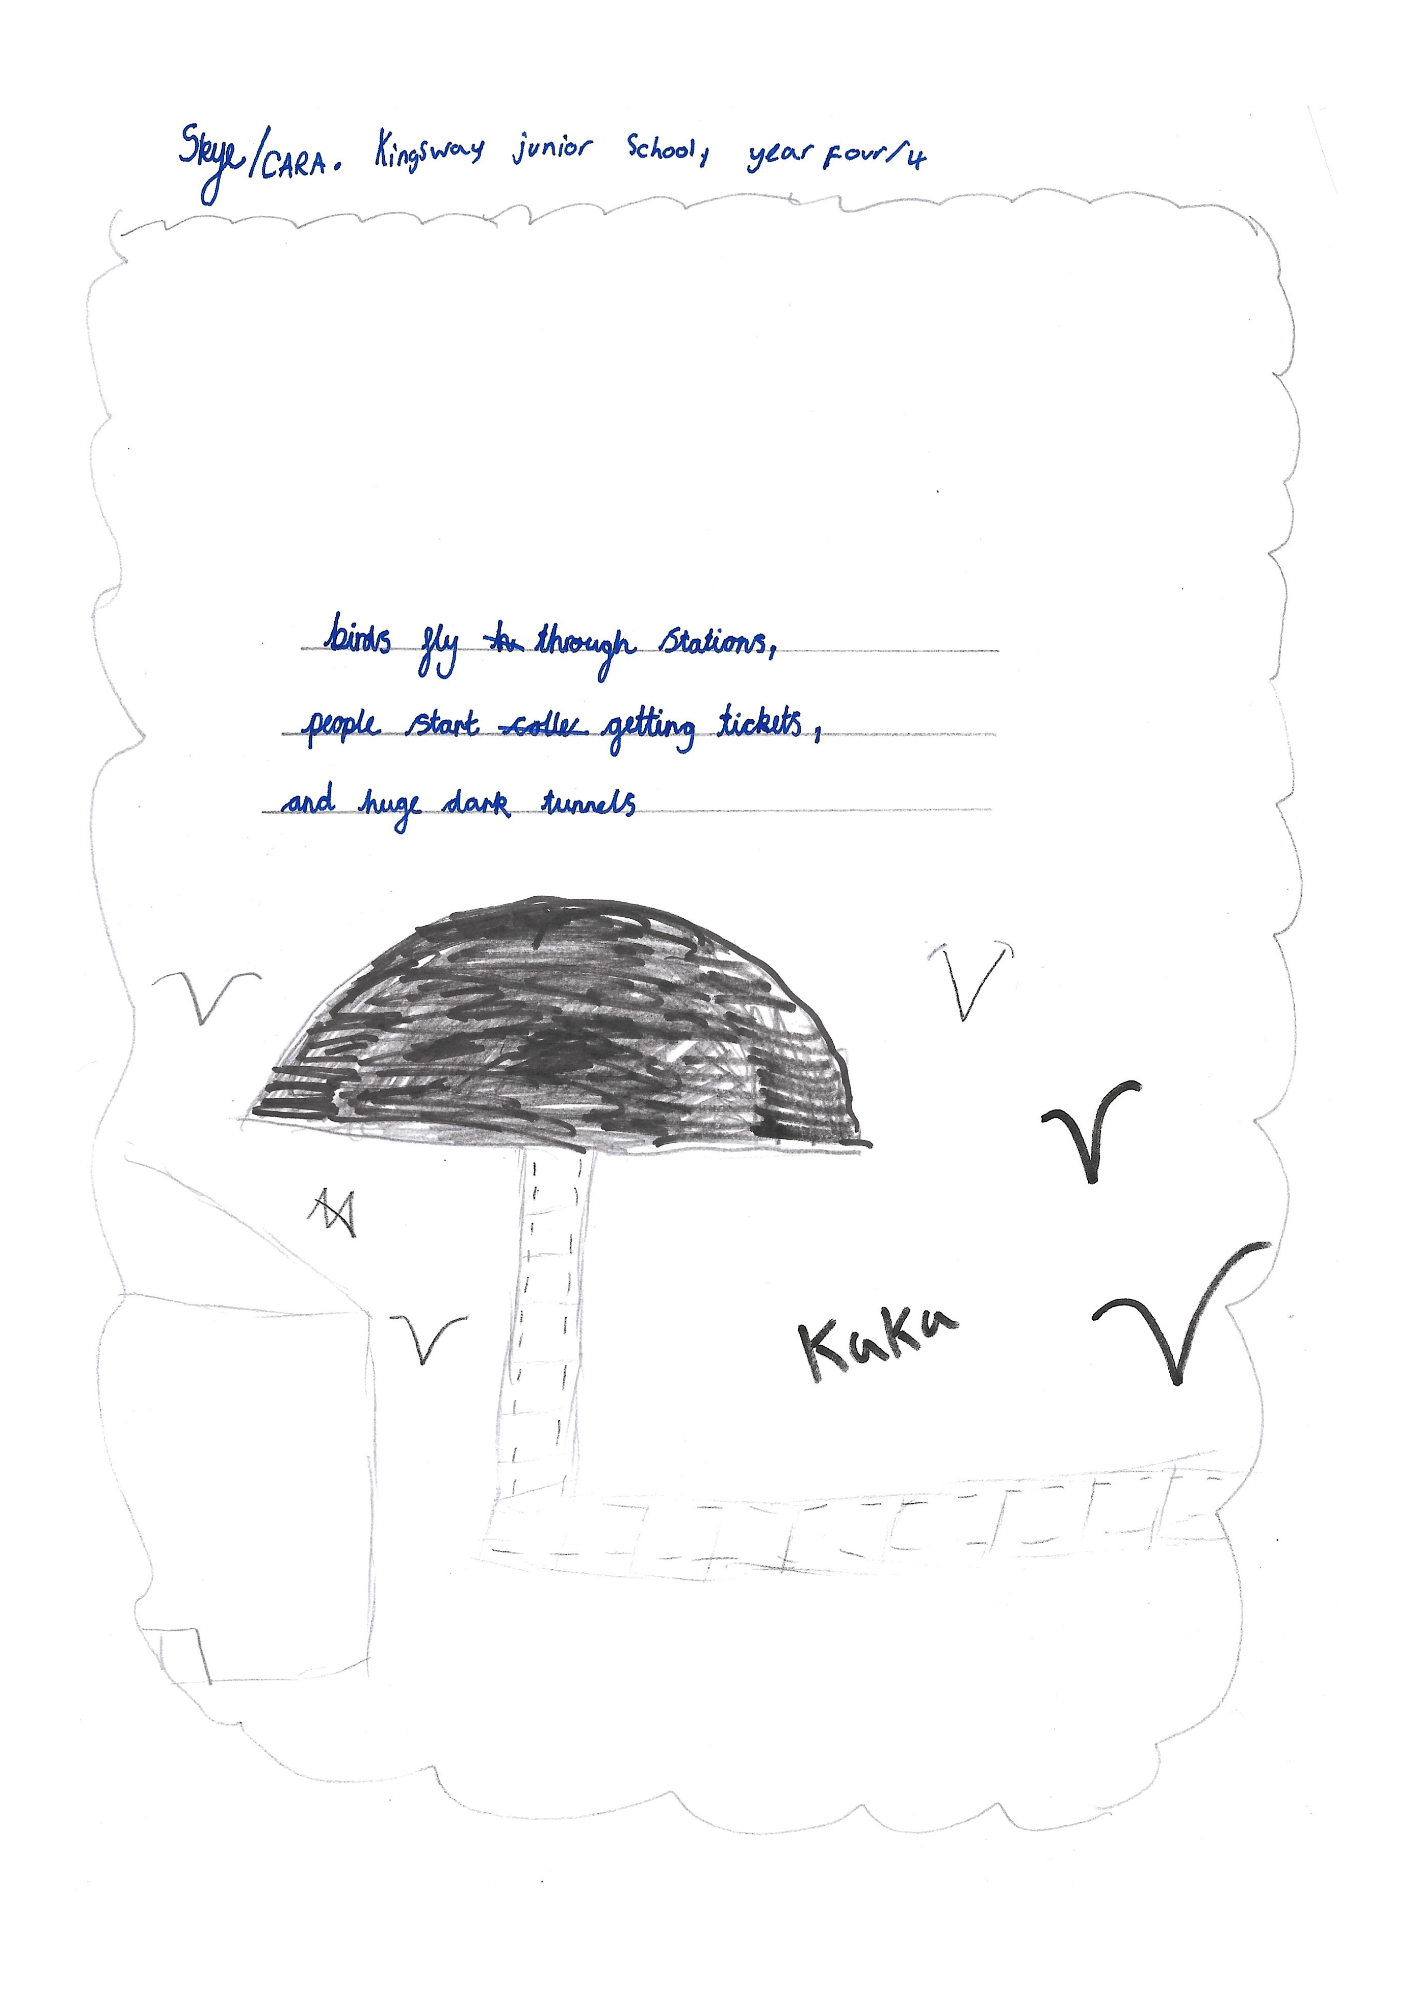 Skye/CARA. Kingsway junior School, year Four/4
birds fly th through stations,
people start colle getting tickets,
and huge dark tunnels
KaKa